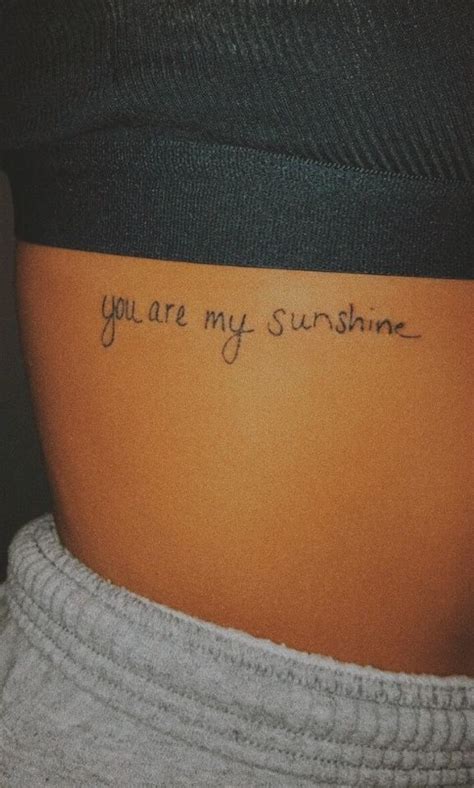 you are my sunshine